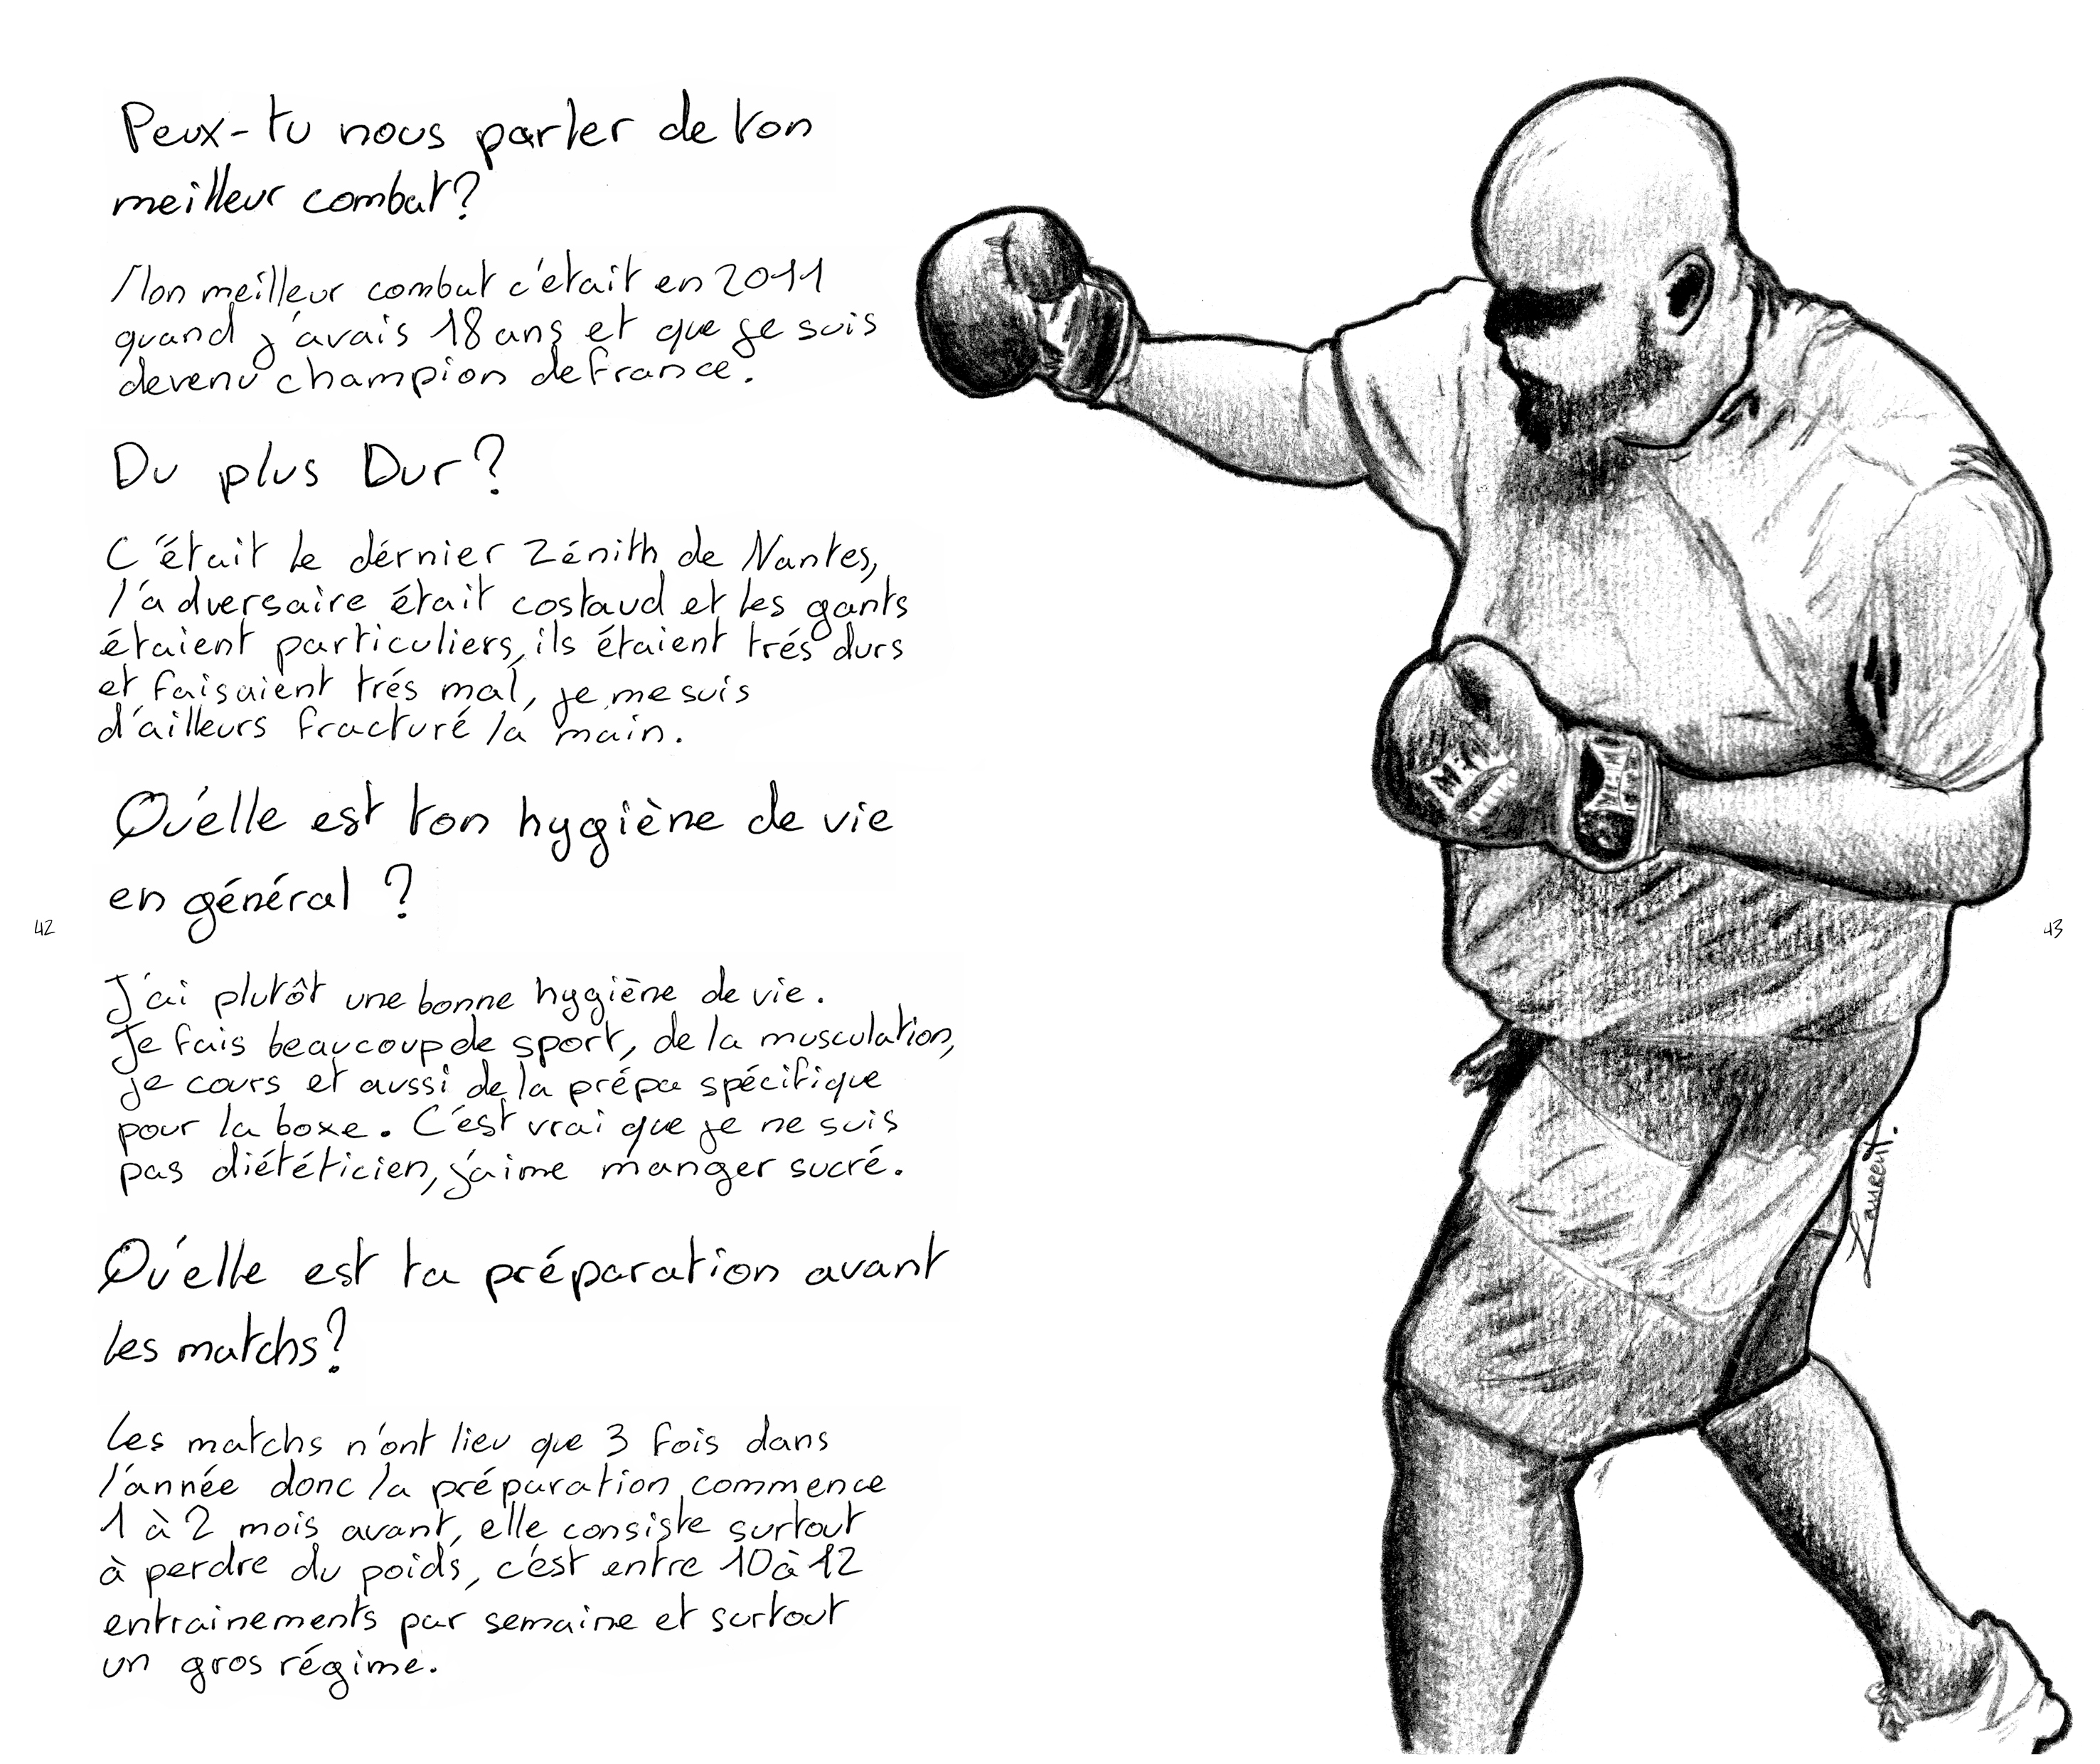 Peux-tu nous parler de ton
meilleur combat?
Mon meilleur combat c'était en 2011
quand j'avais 18 ans et que je suis
devenu champion de france.
Du plus Dur?
C'était le dérnier Zénith de Nantes,
l'adversaire était costaud et les gants
étaient particuliers, ils étaient trés durs
et faisaient trés mal, je me suis
d'ailleurs fracturé la main.
Qu'elle est ton hygiène de vie
en général ?
J'ai plutôt une bonne hygiène de vie.
Je fais beaucoup de sport, de la musculation,
je cours et aussi de la prépa spécifique
pour la boxe. C'est vrai que je ne suis
pas diététicien, j'aime manger sucré.
Qu'elle est ta préparation avant
les matchs?
Les matchs n'ont lieu que 3 fois dans
l'année donc la préparation commence
1 à 2 mois avant, elle consiste surtout
à perdre du poids, c'est entre 10 à 12
entrainements par semaine et surtout
un gros régime.
42
43
Laurent.